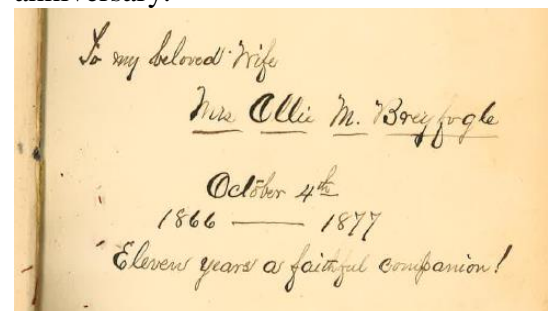 anniversary.
To my beloved Wife
Mrs Ollie M. Breyfogle
October 4th
1866 — 1877
Eleven years a faithful companion!